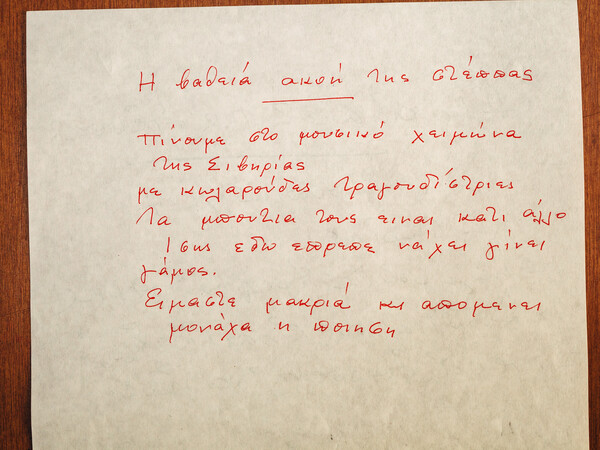 Η βαθειά ακοή της στέππας
πίνουμε στο μουσικό χειμώνα
της Σιβηρίας
με κωλαρούδες τραγουδίστριες
Τα μπούτια τους ειναι κατι άλλο
Ισως εδω επρεπε νάχει γίνει
γάμος.
Ειμαστε μακριά κι απομενει
μονάχα η ποιηση